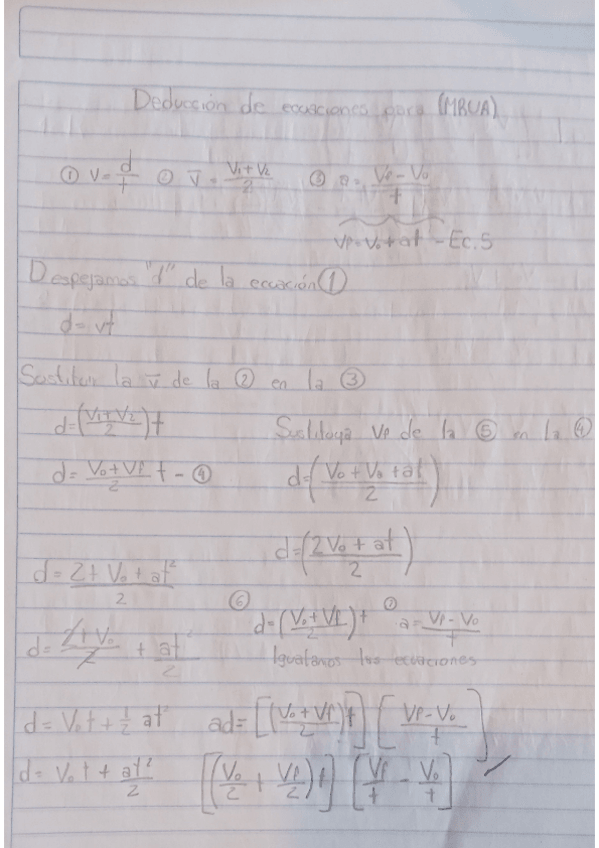 Deducción de ecuaciones para (MRUA)
① V = d/t ② v̅ = (V₁+V₂)/2 ③ a = (Vf - V₀)/t
Vf = V₀ + at - Ec. 5
Despejamos "d" de la ecuación ①
d = vt
Sustituir la v̅ de la ② en la ③
d = ((V₁+V₂)/2) t
Sustituya Vf de la ⑤ en la ④
d = (V₀+Vf)/2 t - ④
d = ((V₀ + V₀ + at)/2)
d = ((2V₀ + at)/2)
d = (2t V₀ + at²)/2
⑥ d = ((V₀+Vf)/2) t ⑦ a = (Vf - V₀)/t
d = 2tV₀/2 + at²/2
Igualamos las ecuaciones
d = V₀t + ½ at²
ad = [((V₀ + Vf)/2) t] [(Vf - V₀)/t]
d = V₀ t + at²/2
[(V₀/2 + Vf/2) t] [Vf/t - V₀/t] ✓